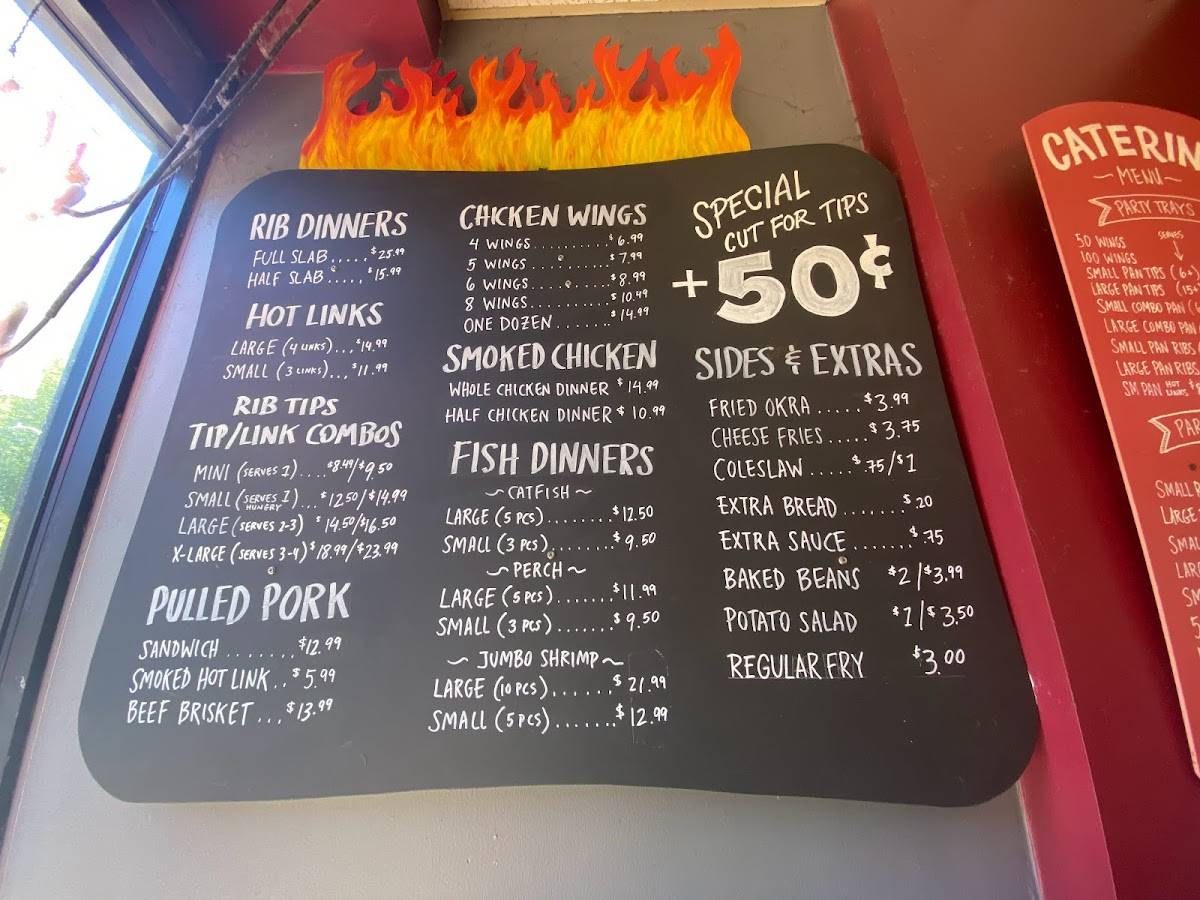 RIB DINNERS
FULL SLAB.....$25.99
HALF SLAB.....$15.99
HOT LINKS
LARGE (4 LINKS)...$14.99
SMALL (3 LINKS)...$11.99
RIB TIPS
TIP/LINK COMBOS
MINI (SERVES 1)....$8.49/$9.50
SMALL (SERVES 1 HUNGRY)...$12.50/$14.99
LARGE (SERVES 2-3) $14.50/$16.50
X-LARGE (SERVES 3-4) $18.99/$23.99
PULLED PORK
SANDWICH.......$12.99
SMOKED HOT LINK..$5.99
BEEF BRISKET...$13.99
CHICKEN WINGS
4 WINGS..........$6.99
5 WINGS..........$7.99
6 WINGS..........$8.99
8 WINGS..........$10.49
ONE DOZEN.......$14.99
SMOKED CHICKEN
WHOLE CHICKEN DINNER $14.99
HALF CHICKEN DINNER $10.99
FISH DINNERS
~CATFISH~
LARGE (5 PCS)........$12.50
SMALL (3 PCS)........$9.50
~PERCH~
LARGE (5 PCS).......$11.99
SMALL (3 PCS).......$9.50
~JUMBO SHRIMP~
LARGE (10 PCS)......$21.99
SMALL (5 PCS).......$12.99
SPECIAL
CUT FOR TIPS
+50¢
SIDES & EXTRAS
FRIED OKRA.....$3.99
CHEESE FRIES.....$3.75
COLESLAW.....$.75/$1
EXTRA BREAD.......$.20
EXTRA SAUCE......$.75
BAKED BEANS $2/$3.99
POTATO SALAD $1/$3.50
REGULAR FRY $3.00
CATERIN
~MENU~
PARTY TRAYS
SERVES
50 WINGS
100 WINGS
SMALL PAN TIPS
LARGE PAN TIPS
SMALL COMBO PAN
LARGE COMBO PAN
SMALL PAN RIBS
LARGE PAN RIBS
SM PAN HOT LINKS
PAR
SMALL
LARGE
SMAL
LAR
SM